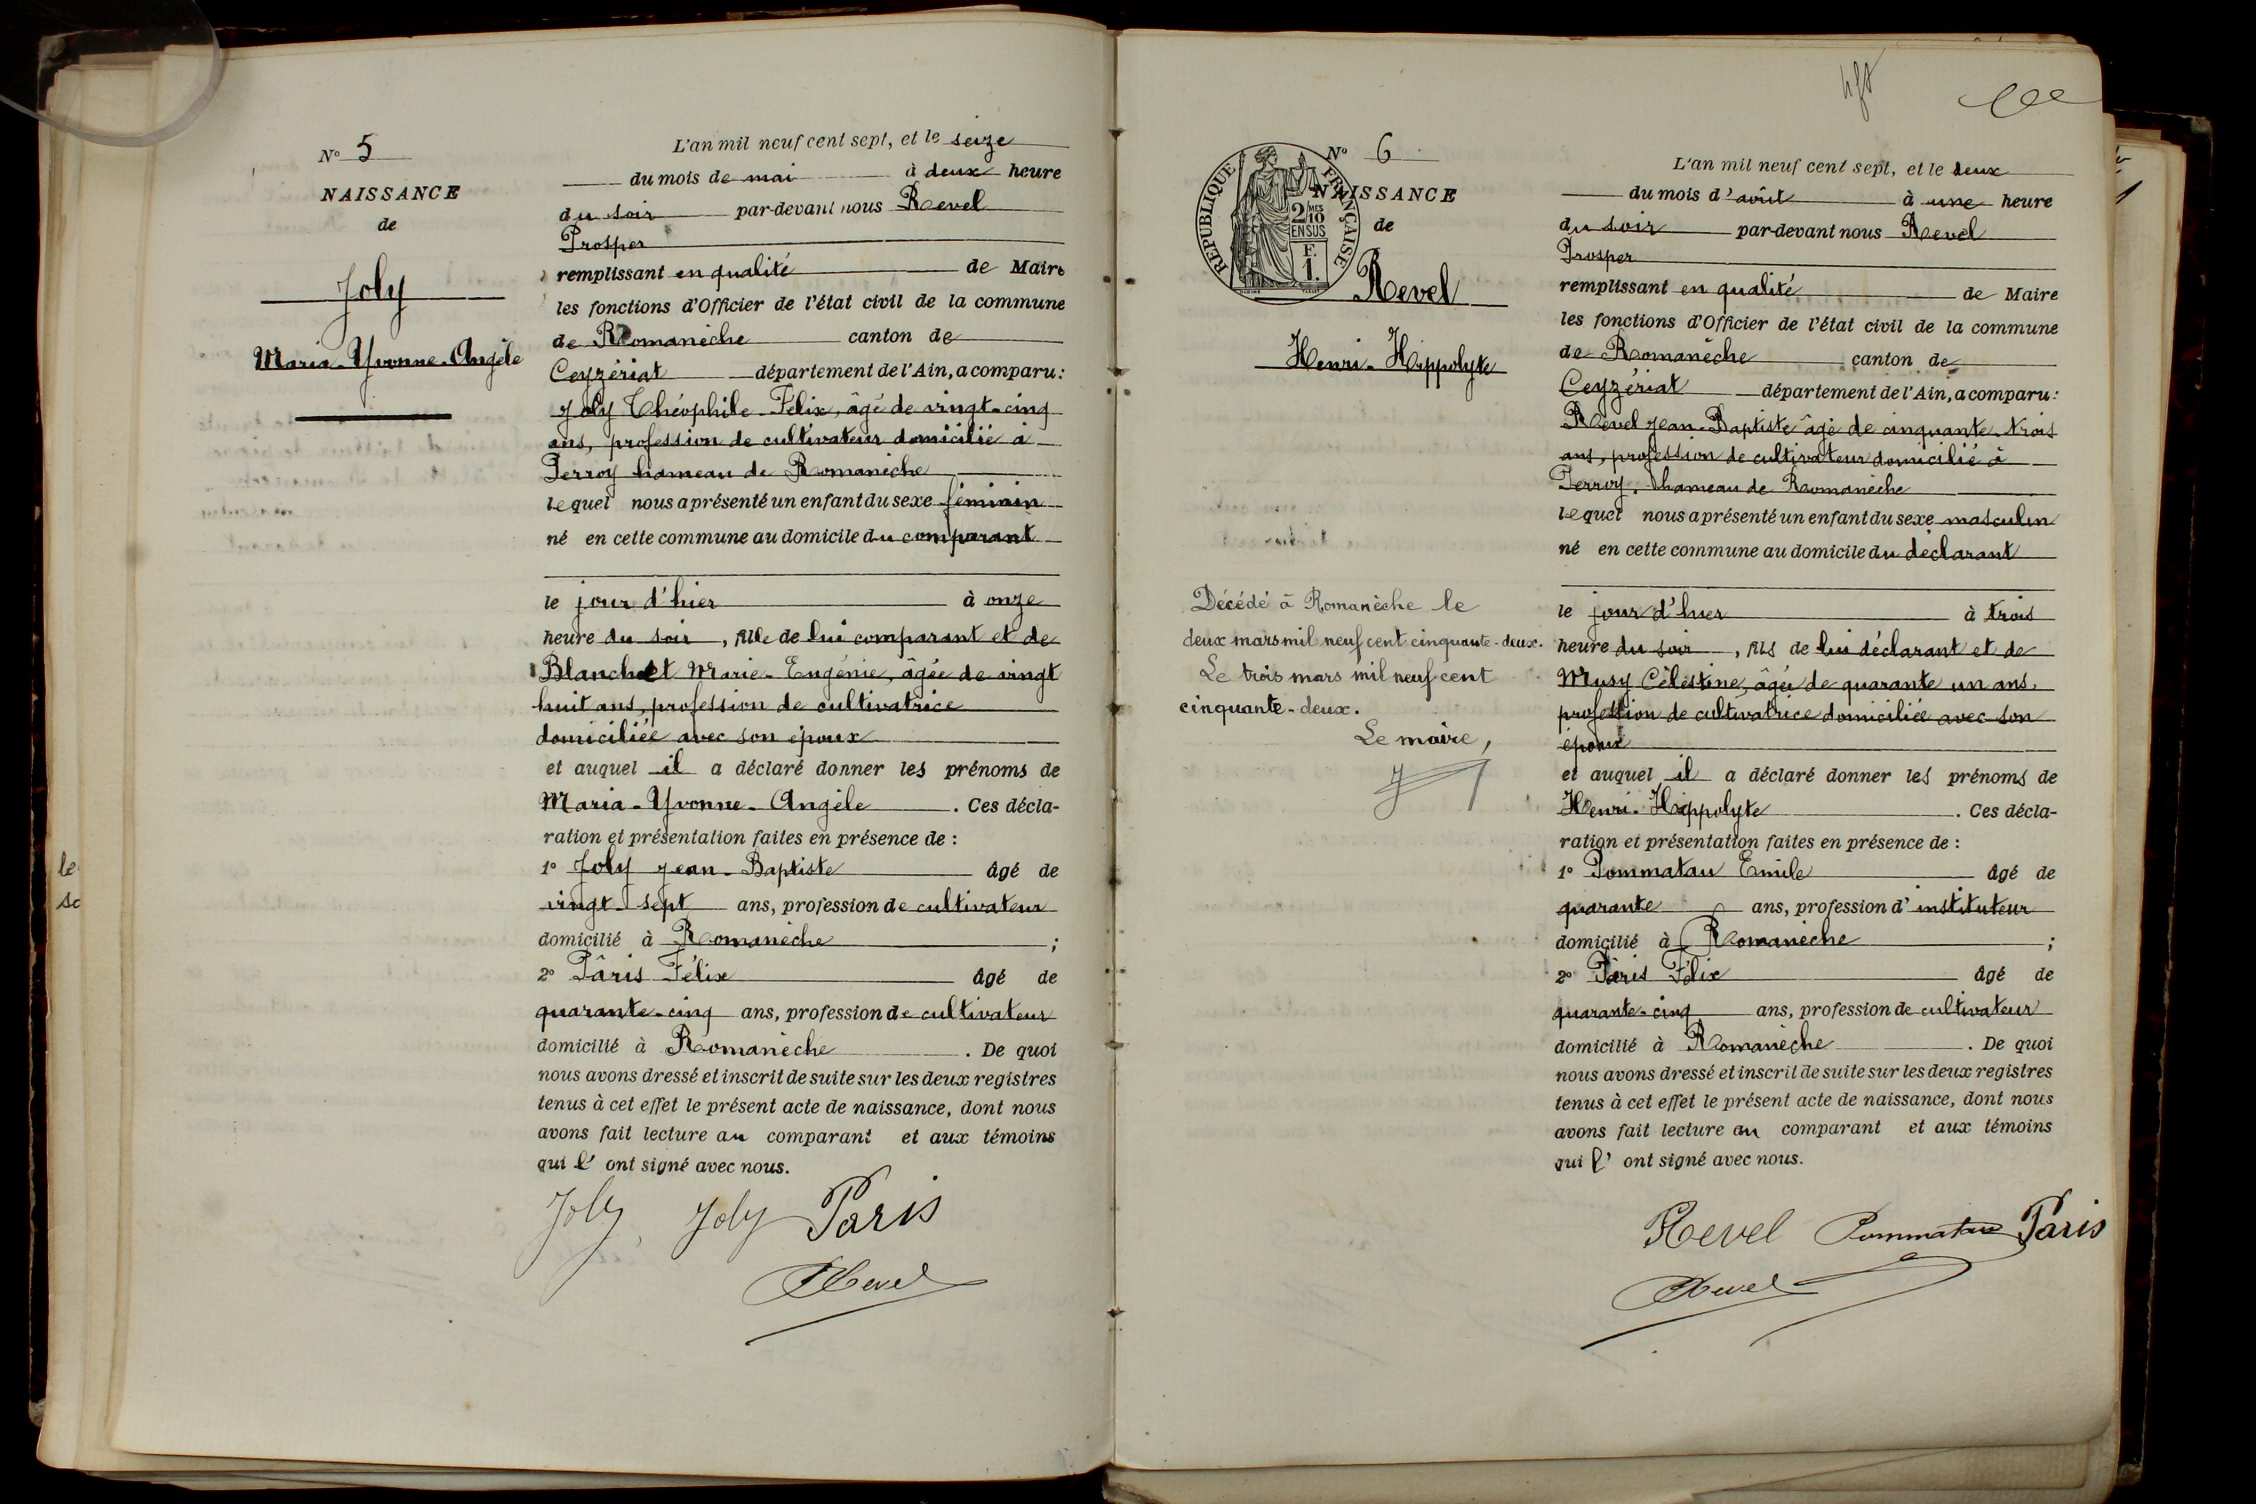 N° 5
NAISSANCE
de
Joly
Maria-Yvonne-Angèle
L'an mil neuf cent sept, et le seize
du mois de mai à deux heure
du soir par-devant nous Revel
Prosper
remplissant en qualité de Maire
les fonctions d'Officier de l'état civil de la commune
de Romanèche canton de
Ceyzériat département de l'Ain, a comparu :
Joly Théophile-Félix, âgé de vingt-cinq
ans, profession de cultivateur domicilié à
Perroy hameau de Romanèche
lequel nous a présenté un enfant du sexe féminin
né en cette commune au domicile du comparant
le jour d'hier à onze
heure du soir, fille de lui comparant et de
Blanchet Marie-Eugénie, âgée de vingt
huit ans, profession de cultivatrice
domiciliée avec son époux
et auquel il a déclaré donner les prénoms de
Maria-Yvonne-Angèle. Ces décla-
ration et présentation faites en présence de :
1° Joly Jean-Baptiste âgé de
vingt-sept ans, profession de cultivateur
domicilié à Romanèche ;
2° Pâris Félix âgé de
quarante-cinq ans, profession de cultivateur
domicilié à Romanèche. De quoi
nous avons dressé et inscrit de suite sur les deux registres
tenus à cet effet le présent acte de naissance, dont nous
avons fait lecture au comparant et aux témoins
qui l' ont signé avec nous.
Joly Joly Paris
Revel
le
so
N° 6
NAISSANCE
de
RÉPUBLIQUE FRANÇAISE
2 MES
10
EN SUS
F.
1.
Revel
Henri-Hippolyte
Décédé à Romanèche le
deux mars mil neuf cent cinquante-deux.
Le trois mars mil neuf cent
cinquante-deux.
Le maire,
L'an mil neuf cent sept, et le deux
du mois d'août à une heure
du soir par-devant nous Revel
Prosper
remplissant en qualité de Maire
les fonctions d'Officier de l'état civil de la commune
de Romanèche canton de
Ceyzériat département de l'Ain, a comparu :
Revel Jean-Baptiste âgé de cinquante-trois
ans, profession de cultivateur domicilié à
Perroy, hameau de Romanèche
lequel nous a présenté un enfant du sexe masculin
né en cette commune au domicile du déclarant
le jour d'hier à trois
heure du soir, fils de lui déclarant et de
Musy Célestine, âgée de quarante un ans,
profession de cultivatrice domiciliée avec son
époux
et auquel il a déclaré donner les prénoms de
Henri-Hippolyte. Ces décla-
ration et présentation faites en présence de :
1° Pommatau Emile âgé de
quarante ans, profession d'instituteur
domicilié à Romanèche ;
2° Pâris Félix âgé de
quarante-cinq ans, profession de cultivateur
domicilié à Romanèche. De quoi
nous avons dressé et inscrit de suite sur les deux registres
tenus à cet effet le présent acte de naissance, dont nous
avons fait lecture au comparant et aux témoins
qui l' ont signé avec nous.
Revel Pommatau Paris
Revel